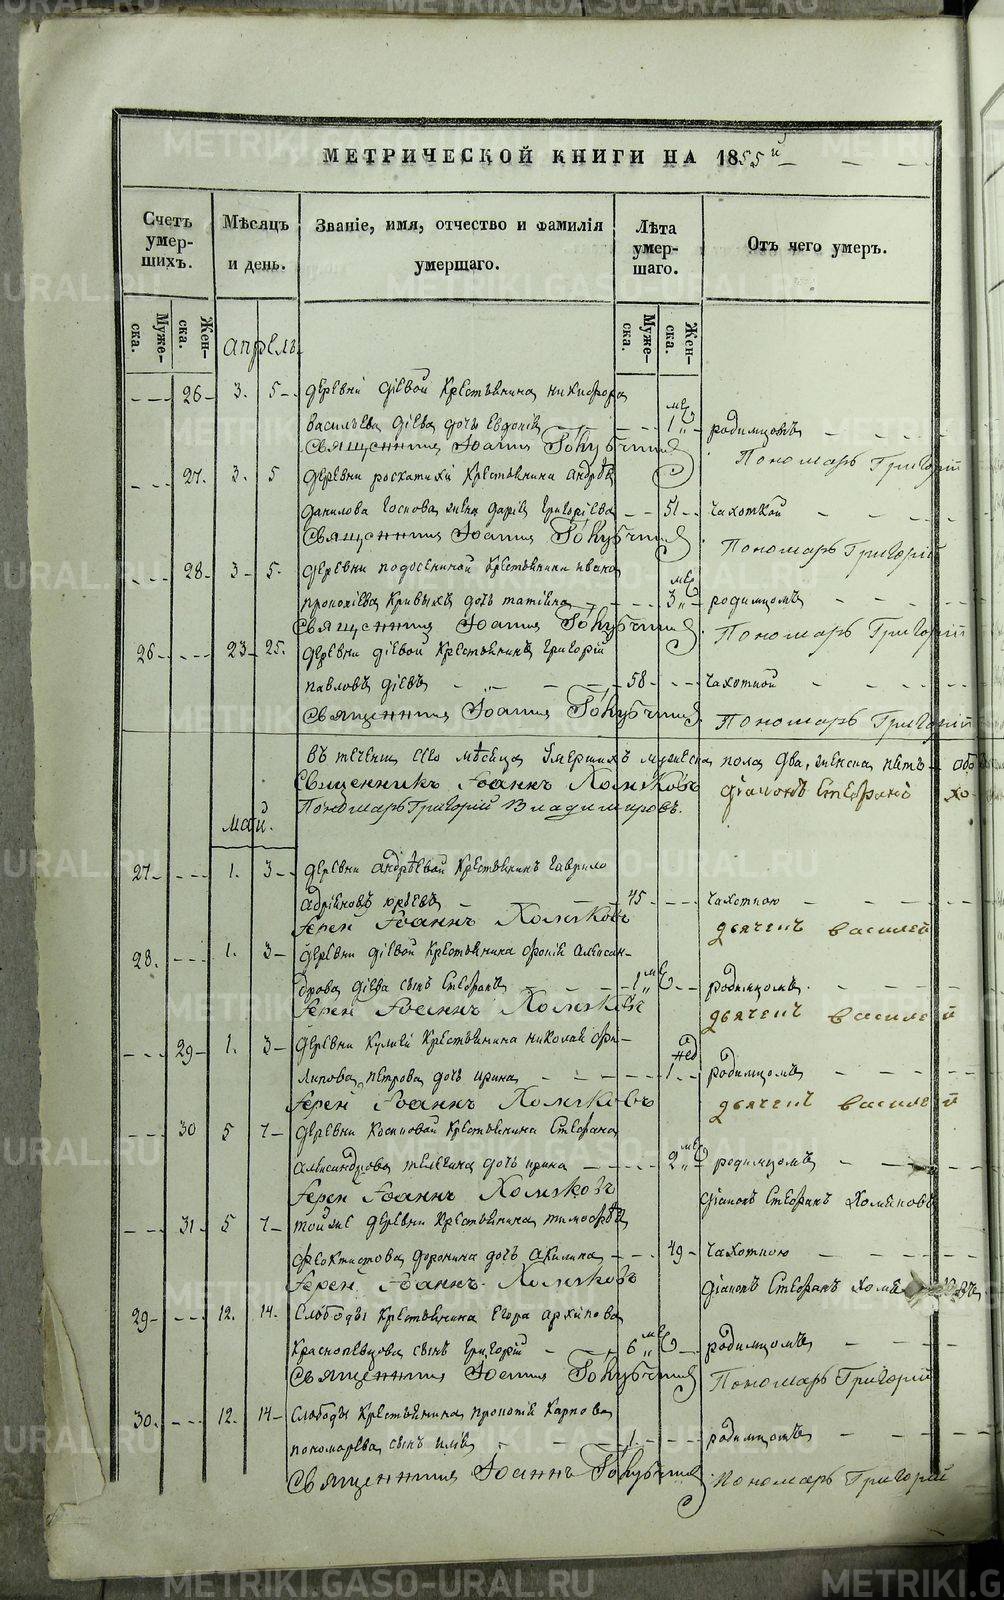 МЕТРИЧЕСКОЙ КНИГИ НА 1855й
Счетъ умер- шихъ.
Мѣсяцъ и день.
Званіе, имя, отчество и фамилія умершаго.
Лѣта умер- шаго.
Отъ чего умеръ.
Муже- ска.
Жен- ска.
Муже- ска.
Жен- ска.
апрель
26 3. 5 деревни Діевой Крестьянина никифора
васильева Діева дочь Евдокія 1 мес родимцомъ
Священникъ Іоаннъ Пономарь Григорій
27. 3. 5 деревни крестьянина андрѣя
данилова жена дарія Григоріева 51 чахоткой
Священникъ Іоаннъ Пономарь Григорій
28 3 5. деревни крестьянина ивана
прокопіева Кривыхъ дочь татіяна 3 мес родимцомъ
Священникъ Іоаннъ Пономарь Григорій
26 23 25. деревни діевой Крестьянинъ Григорій
павловъ діевъ 58 чахоткой
Священникъ Іоаннъ Пономарь Григорій
въ теченіи сего мѣсяца умершихъ мужеска пола два, женска пять
Священникъ Іоаннъ Хомяковъ діаконъ Стефанъ Хо-
Пономарь Григорій Владимировъ.
май.
27 1. 3 деревни андрѣевой Крестьянинъ Гаврило
адріановъ юрьевъ 45 чахоткою
Іерей Іоаннъ Хомяковъ дьячекъ василей
28. 1. 3 деревни діевой Крестьянина алексан-
дрова діева сынъ Стефанъ 1 мес родимцомъ.
Іерей Іоаннъ Хомяковъ дьячекъ василей
29 1. 3 деревни Крестьянина николая фи-
липова петрова дочь ирина 1 нед родимцомъ
Іерей Іоаннъ Хомяковъ дьячекъ василей
30 5 7 деревни Косиковой Крестьянина Стефана
александрова дочь ирина 2 мес родимцомъ
Іерей Іоаннъ Хомяковъ діаконъ Стефанъ Хомяковъ
31 5 7 той же деревни крестьянина тимофѣя
феоктистова доронина дочь акилина 49 чахоткою
Іерей Іоаннъ Хомяковъ діаконъ Стефанъ
29 12. 14. Слободы Крестьянина Егора архипова
краснопевцова сынъ Григорій 6 мес родимцомъ
Священникъ Іоаннъ Пономарь Григорій
30. 12. 14 Слободы Крестьянина прокопія Карпова
пономарева сынъ 1. родимцомъ
Священникъ Іоаннъ Пономарь Григорій
METRIKI.GASO-URAL.RU